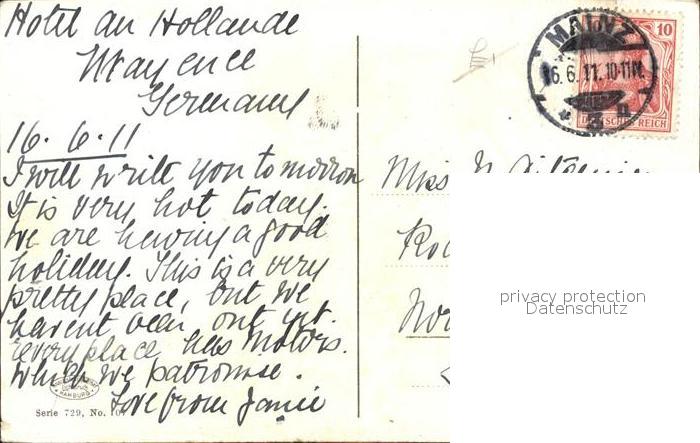 Hotel du Hollande
Mayence
Germany
16. 6. 11
I will write you tomorrow
It is very hot today.
We are having a good
holiday. This is a very
pretty place, but we
havent been out yet.
every place has motors.
which we patronise.
Love from Janie
Serie 729, No. 10
HAMBURG
MAINZ
16. 6. 11. 10-11 N.
* 3
10
DEUTSCHES REICH
Miss
privacy protection
Datenschutz